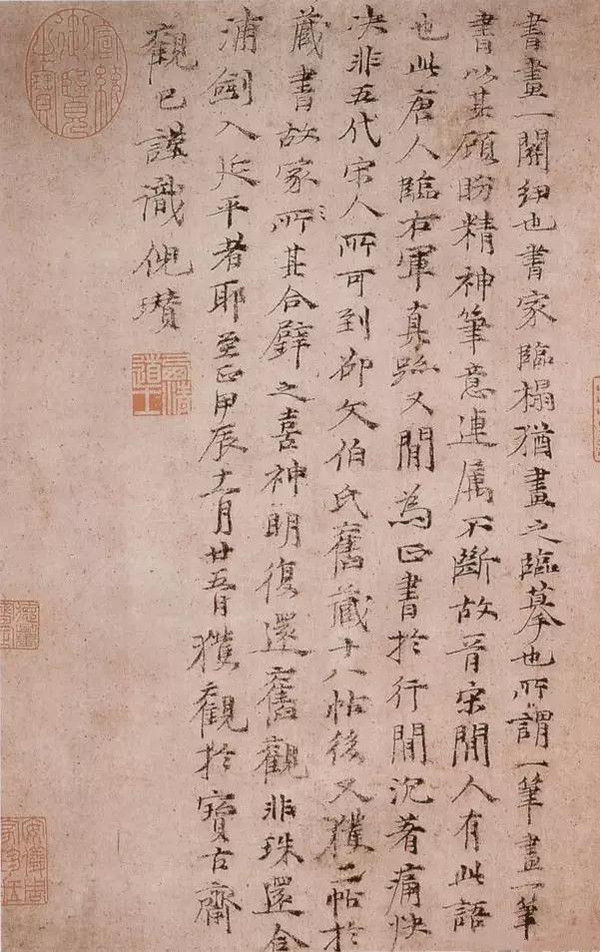 書畫一關紐也書家臨搨猶畫之臨摹也所謂一筆畫一筆
書以其顧盼精神筆意連属不斷故晉宋間人有此語
也此唐人臨右軍真跡又間為正書於行間沉著痛快
决非五代宋人所可到伯氏舊藏十八帖後又獲二帖於
藏書故家所其合璧之喜神明復還舊觀非珠還合
浦劍入延平者耶至正甲辰十二月廿五日獲觀於寶古齋
觀已謹識倪瓚
宣統御覽之寶
安儀周家珍藏